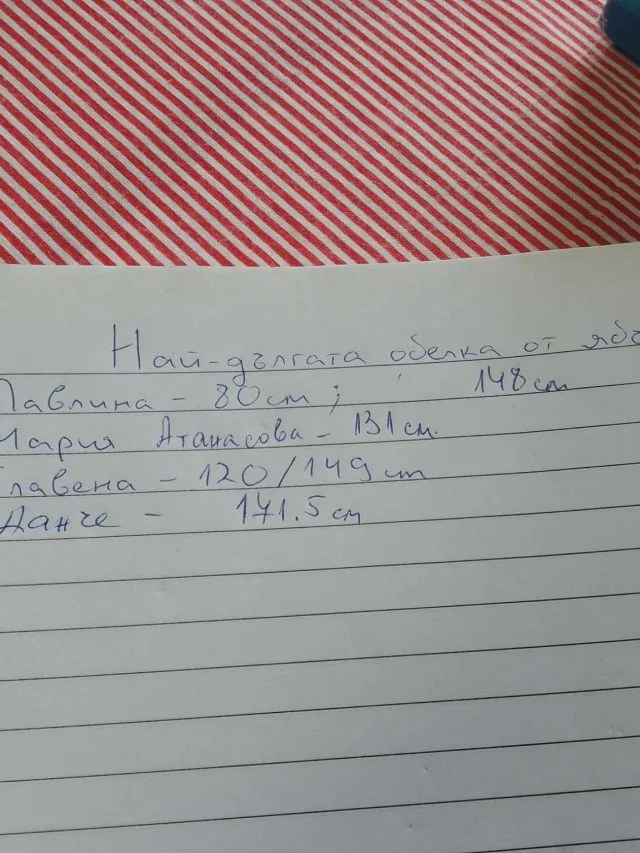 Най-дългата обелка от ябъ
Павлина - 80см; 148см
Мария Атанасова - 131см.
Славена - 120/149 cm
Данче - 171.5 см